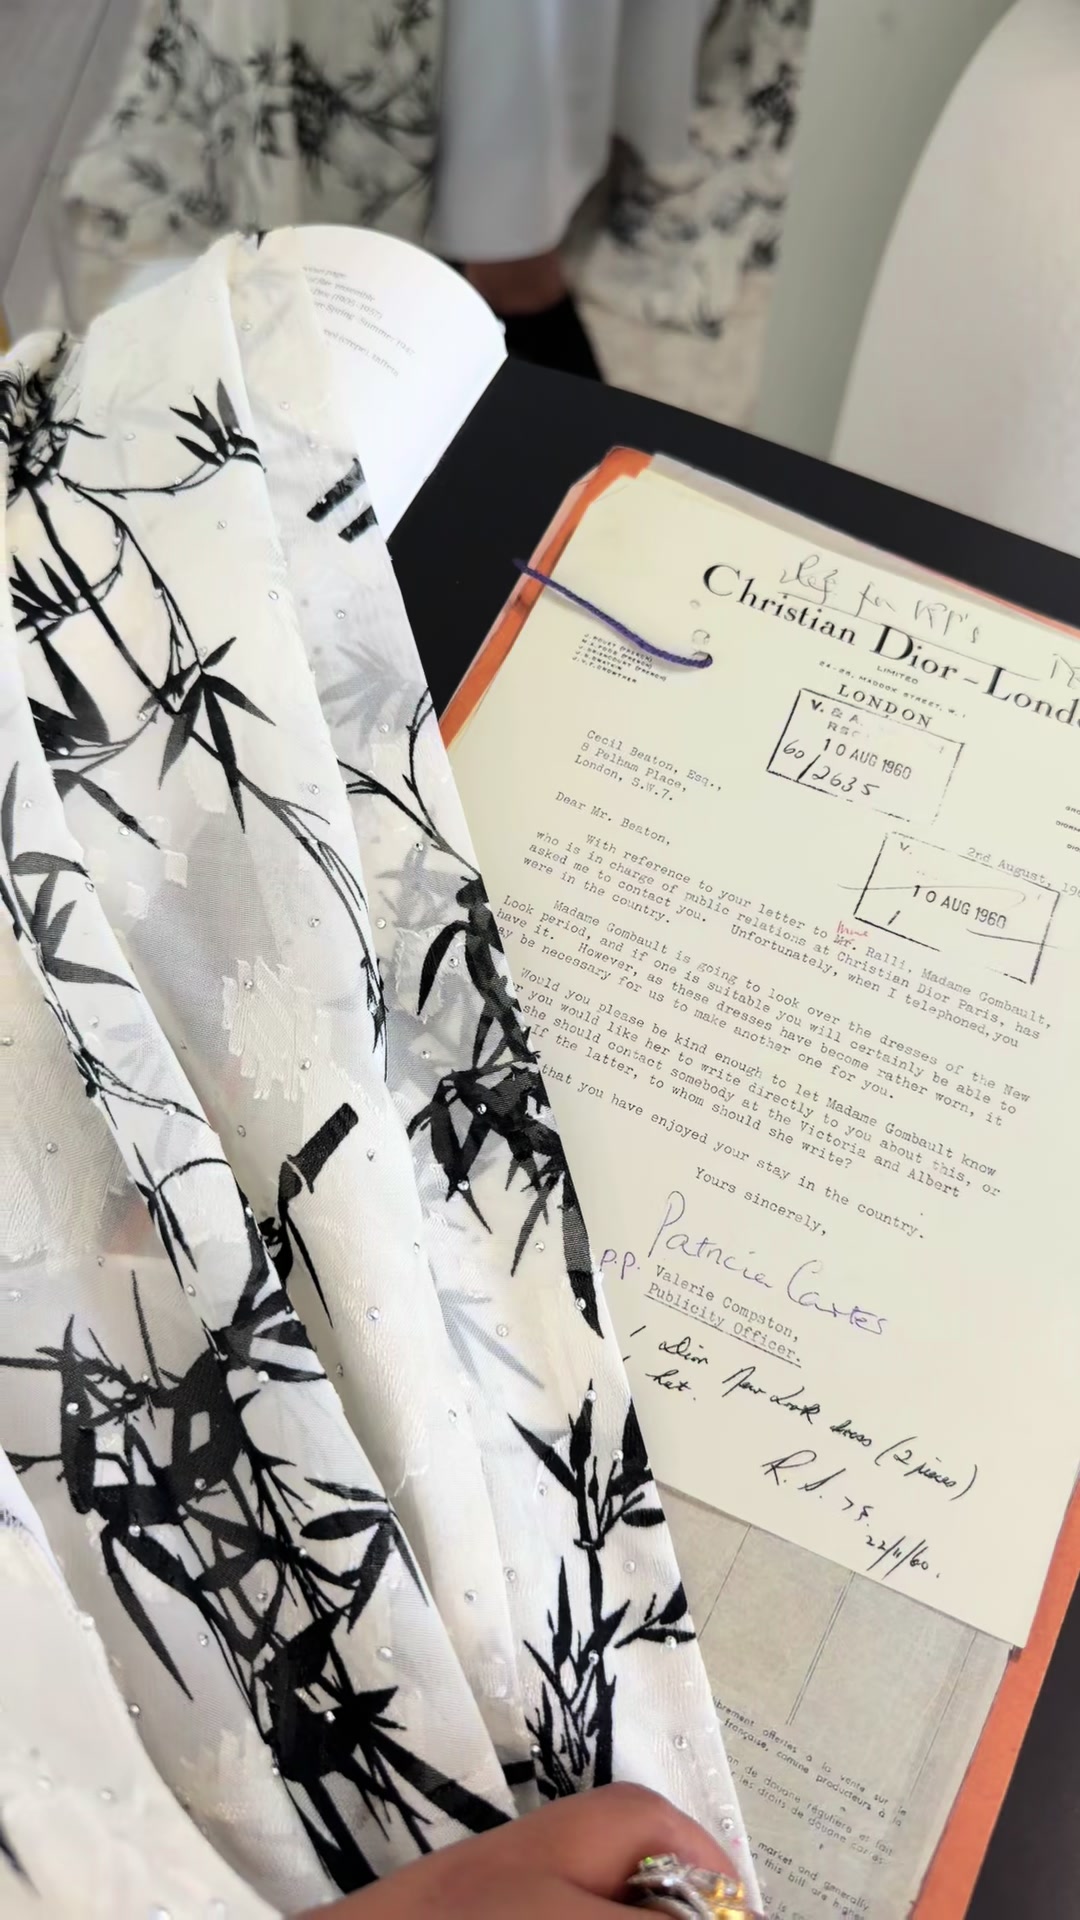 Spring-Summer 194
Ref for RP's
Christian Dior-Lond
LIMITED
24-26, MADDOX STREET, W.1
LONDON
J. ROUET (FRENCH)
J. V. F. CROWTHER
V. & A.
10 AUG 1960
60/2635
Cecil Beaton, Esq.,
8 Pelham Place,
London, S.W.7.
2nd August, 196
V.
10 AUG 1960
Dear Mr. Beaton,
With reference to your letter to Mr. Ralli, Madame Gombault,
who is in charge of public relations at Christian Dior Paris, has
asked me to contact you. Unfortunately, when I telephoned, you
were in the country.
Madame Gombault is going to look over the dresses of the New
Look period, and if one is suitable you will certainly be able to
have it. However, as these dresses have become rather worn, it
ay be necessary for us to make another one for you.
Would you please be kind enough to let Madame Gombault know
you would like her to write directly to you about this, or
she should contact somebody at the Victoria and Albert
If the latter, to whom should she write?
that you have enjoyed your stay in the country.
Yours sincerely,
p.p. Patricia
Valerie Compston,
Publicity Officer.
1 Dior New Look dress (2 pieces)
hat.
R. S.
22/11/60.
brement offertes à la vente sur le
française, comme producteurs à la
n de douane réguliers et fait
les droits de douane
market and generally
on this bill are higher